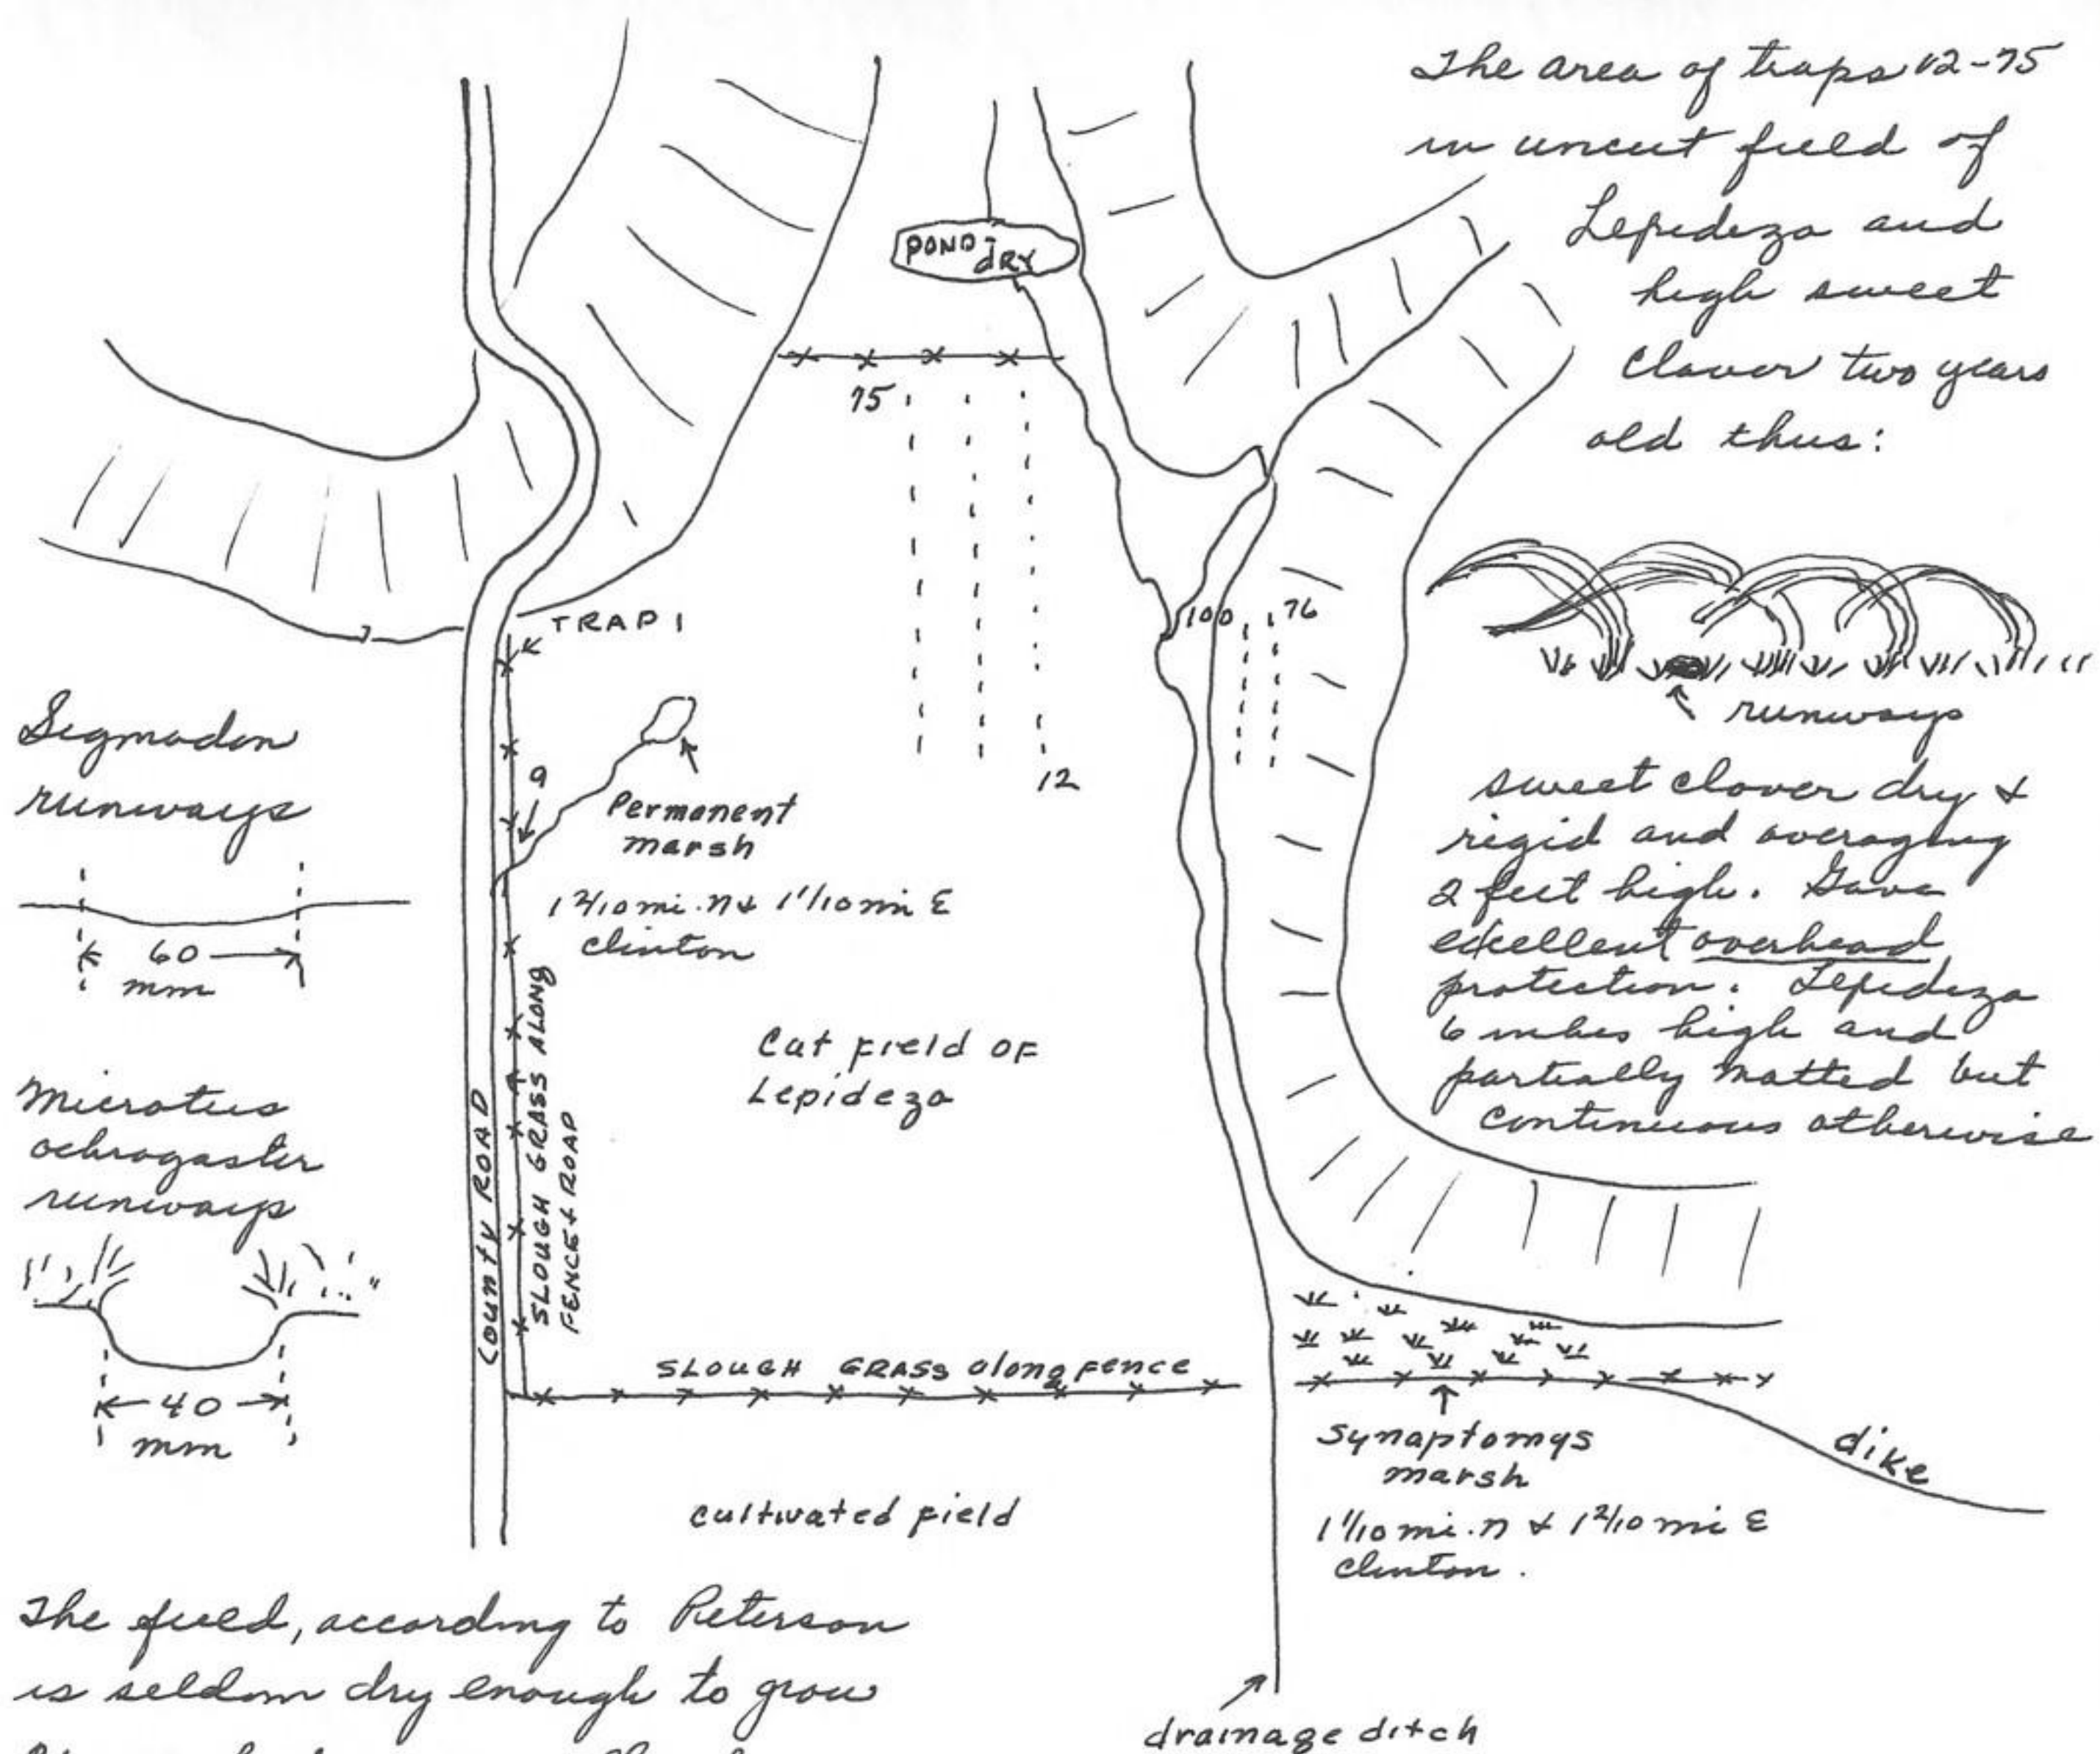 The area of traps 12-75
in uncut field of
Lepideza and
high sweet
clover two years
old thus:
POND - dRY
75
TRAP 1
100
76
runways
Sigmodon
runways
9
Permanent
marsh
12
1 2/10 mi. n & 1 1/10 mi E
Clinton
60
mm
sweet clover dry &
rigid and averaging
2 feet high. Gave
excellent overhead
protection. Lepideza
6 inches high and
partially matted but
continuous otherwise
Cut field OF
Lepideza
COUNTY ROAD
SLOUGH GRASS ALONG
FENCE & ROAD
Microtus
ochrogaster
runways
40
mm
SLOUGH GRASS along fence
Synaptomys
marsh
1 1/10 mi. n & 1 2/10 mi E
Clinton.
dike
cultivated field
The field, according to Peterson
is seldom dry enough to grow
drainage ditch